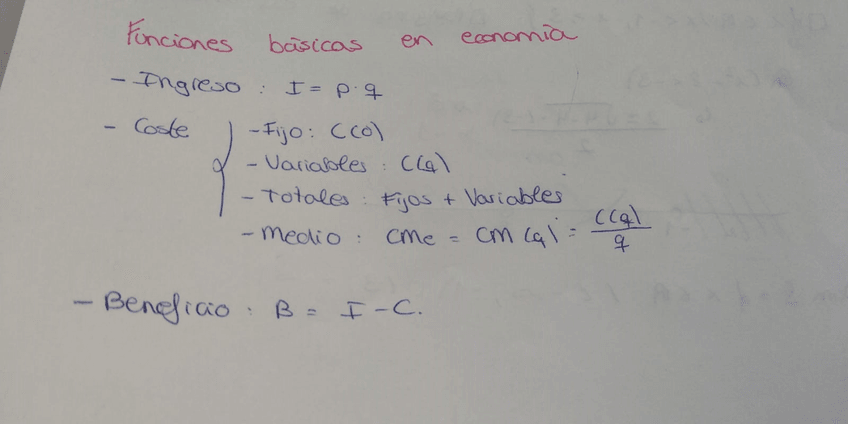 Funciones básicas en economía
- Ingreso : I = p · q
- Coste { - Fijo: C(0)
- Variables : C(q)
- Totales : Fijos + Variables
- Medio : CMe = CM(q) = C(q)/q
- Beneficio : B = I - C.